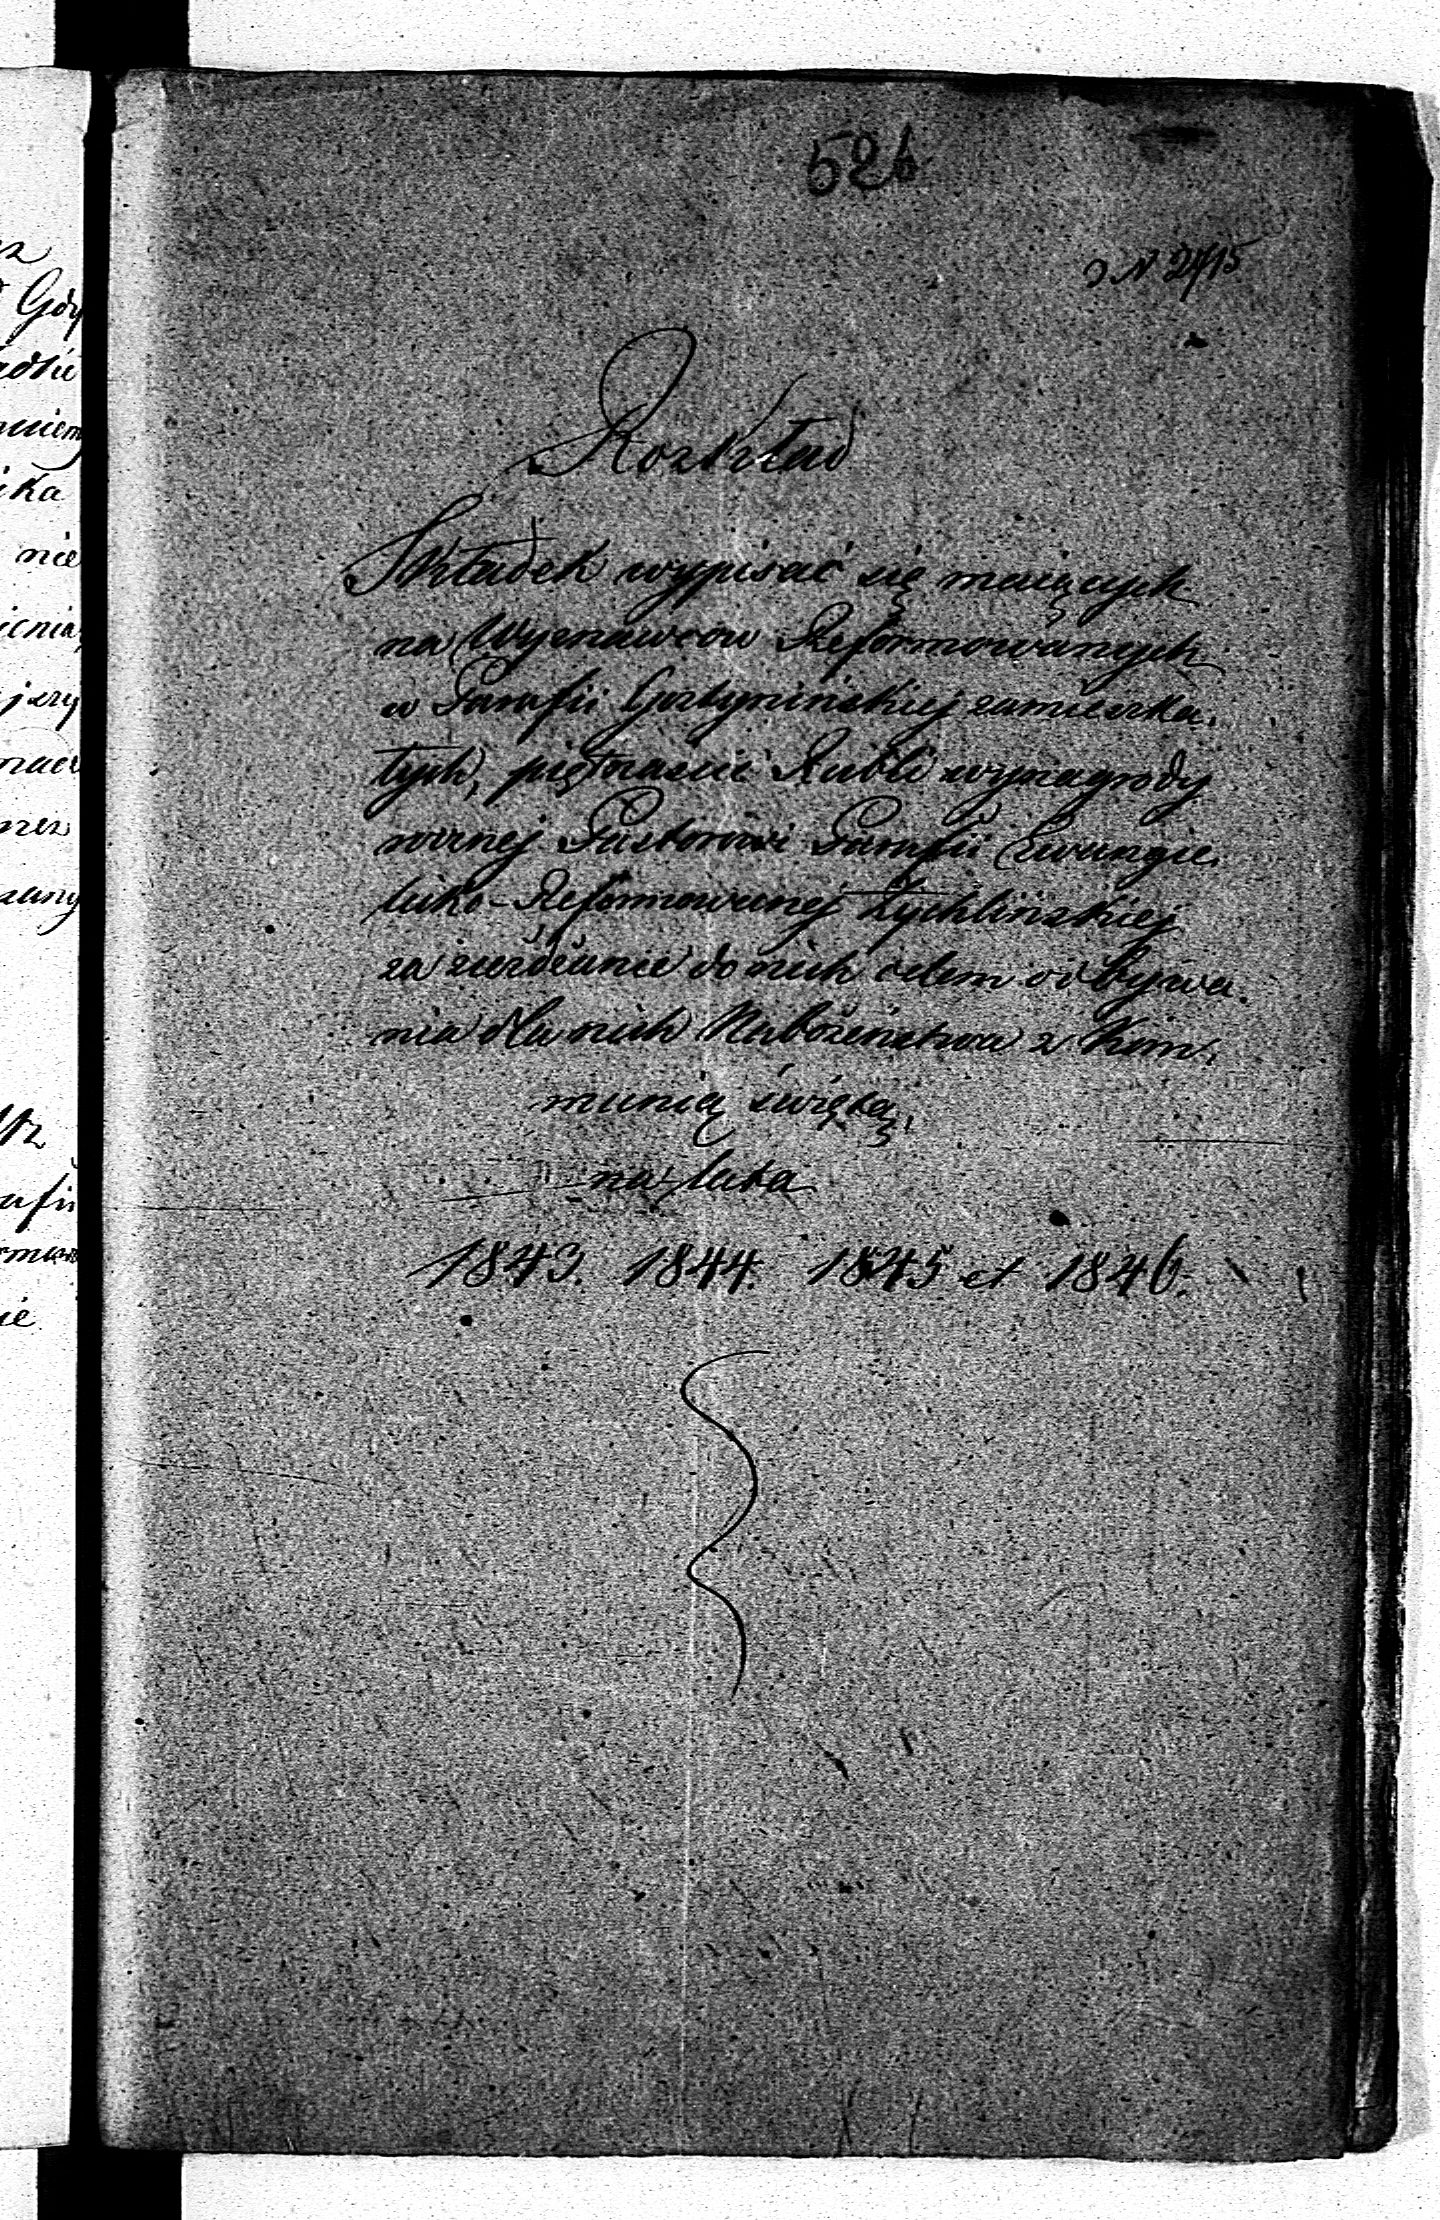 526
Rozkład
Składek wypisać się mających
na Wyznawców Reformowanych
w Parafii Gostynińskiej zamieszka-
łych, piętnaście Rubli wynagrody
rocznej Pastorowi Parafii Ewangie-
licko-Reformowanej Żychlińskiej
za zjeżdżanie do nich celem odbywa-
nia dla nich Nabożeństwa z Kom-
munią świętą,
na lata
1843. 1844. 1845 et 1846.
Gdy
nie